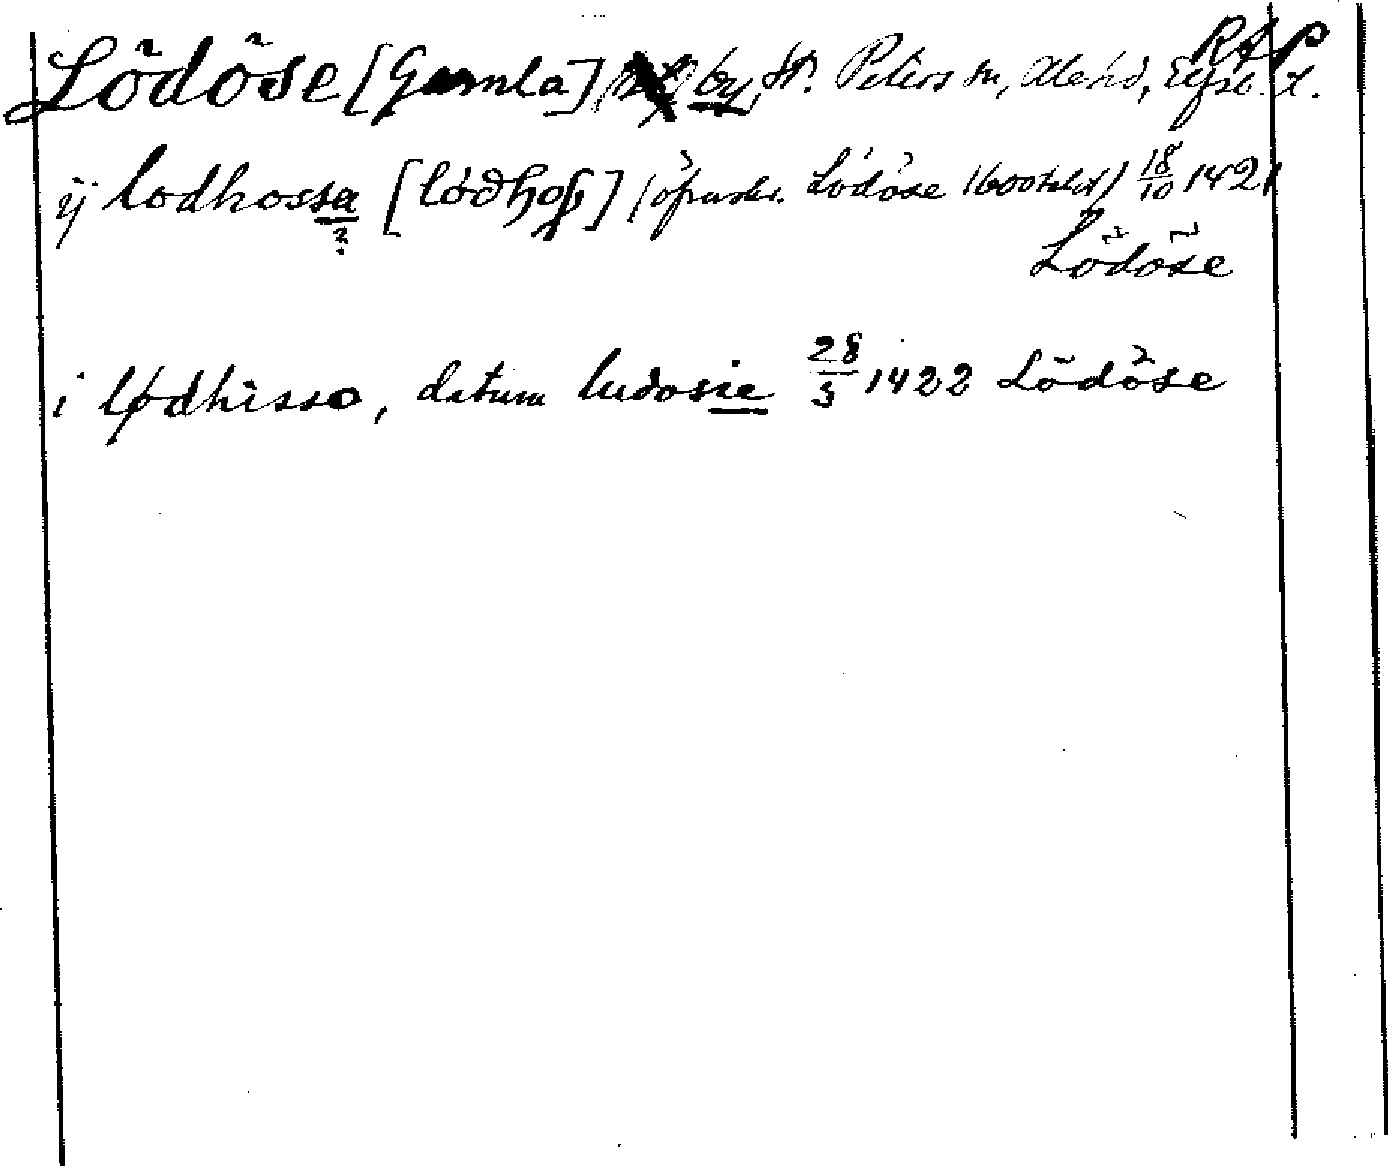 RAP
Lödöse [Gamla], by, St. Peters sn, Alehd, Elfsb. l.
ij lodhossa [lódhoſſ] (öpaskr. Lödöse 1600talet) 18/10 1421
?
Lödöse
i lødhisso, datum ludosie 28/3 1422 Lödöse